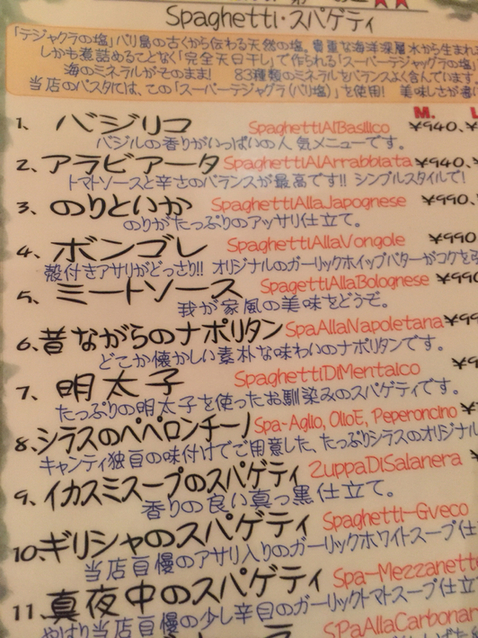 Spaghetti・スパゲティ
「テジャクラの塩」バリ島の古くから伝わる天然の塩。貴重な海洋深層水から生まれ
しかも煮詰めることなく「完全天日干し」で作られる「スーパーテジャッグラの塩」
海のミネラルがそのまま! 83種類のミネラルをバランスよく含んでいます。
当店のパスタには、この「スーパーテジャグラ(バリ塩)」を使用! 美味しさが
M.
1. バジリコ SpaghettiAlBasilico ¥940.
バジルの香りがいっぱいの人気メニューです。
2. アラビアータ SpaghettiAlArrabbiata ¥940.
トマトソースと辛さのバランスが最高です!! シンプルスタイルで!
3. のりといか SpaghettiAllaJapognese ¥990.
のりがたっぷりのアッサリ仕立て。
4. ボンゴレ SpaghettiAllaVongole ¥990.
殻付きアサリがどっさり!! オリジナルのガーリックホイップバターがコクを
5. ミートソース SpagettiAllaBolognese ¥990
我が家風の美味をどうぞ。
6. 昔ながらのナポリタン SpaAllaNapoletana ¥99
どこか懐かしい素朴な味わいのナポリタンです。
7. 明太子 SpaghettiDiMentaico
たっぷりの明太子を使ったお馴染みのスパゲティです。
8. シラスのペペロンチーノ Spa-Aglio, OlioE, Peperoncino ¥
キャンティ独自の味付けでご用意した、たっぷりシラスのオリジナル
9. イカスミスープのスパゲティ ZuppaDiSalanera
香りの良い真っ黒仕立て。
10. ギリシャのスパゲティ Spaghetti-Gveco
当店自慢のアサリ入りのガーリックホワイトスープ仕
11. 真夜中のスパゲティ Spa-Mezzanett
やはり当店自慢の少し辛目のガーリックトマトスープ仕立
SPaAllaCarbonar